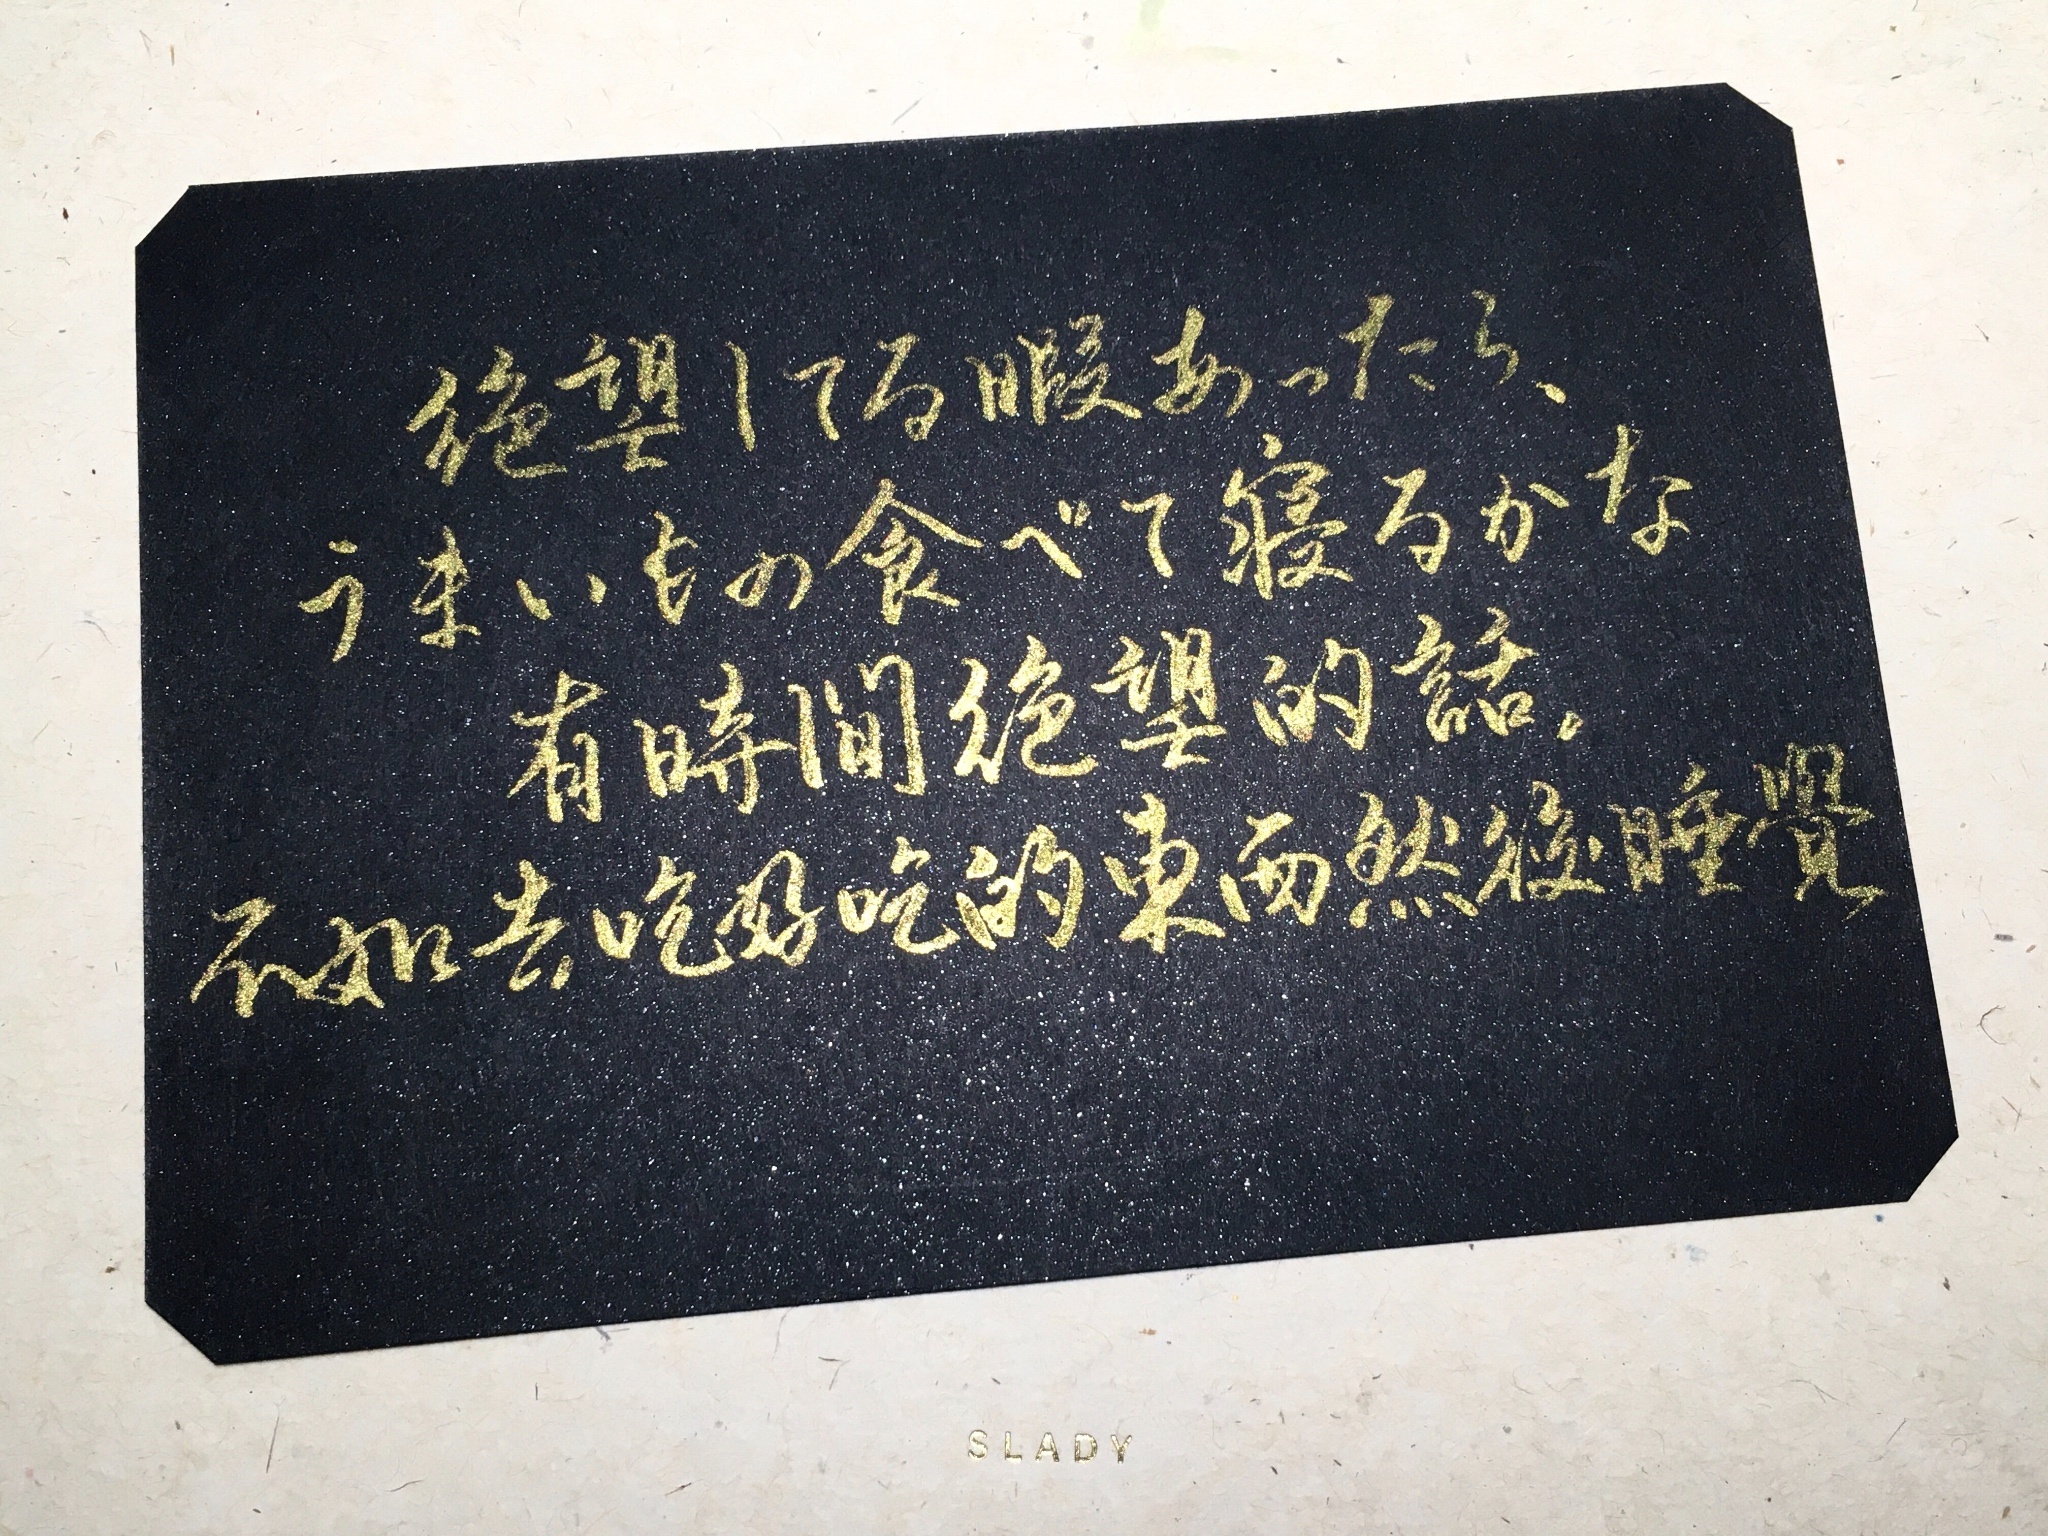 絶望してる暇あったら、
うまいもの食べて寝るかな
有時間絶望的話。
不如去吃好吃的東西然後睡覺
SLADY